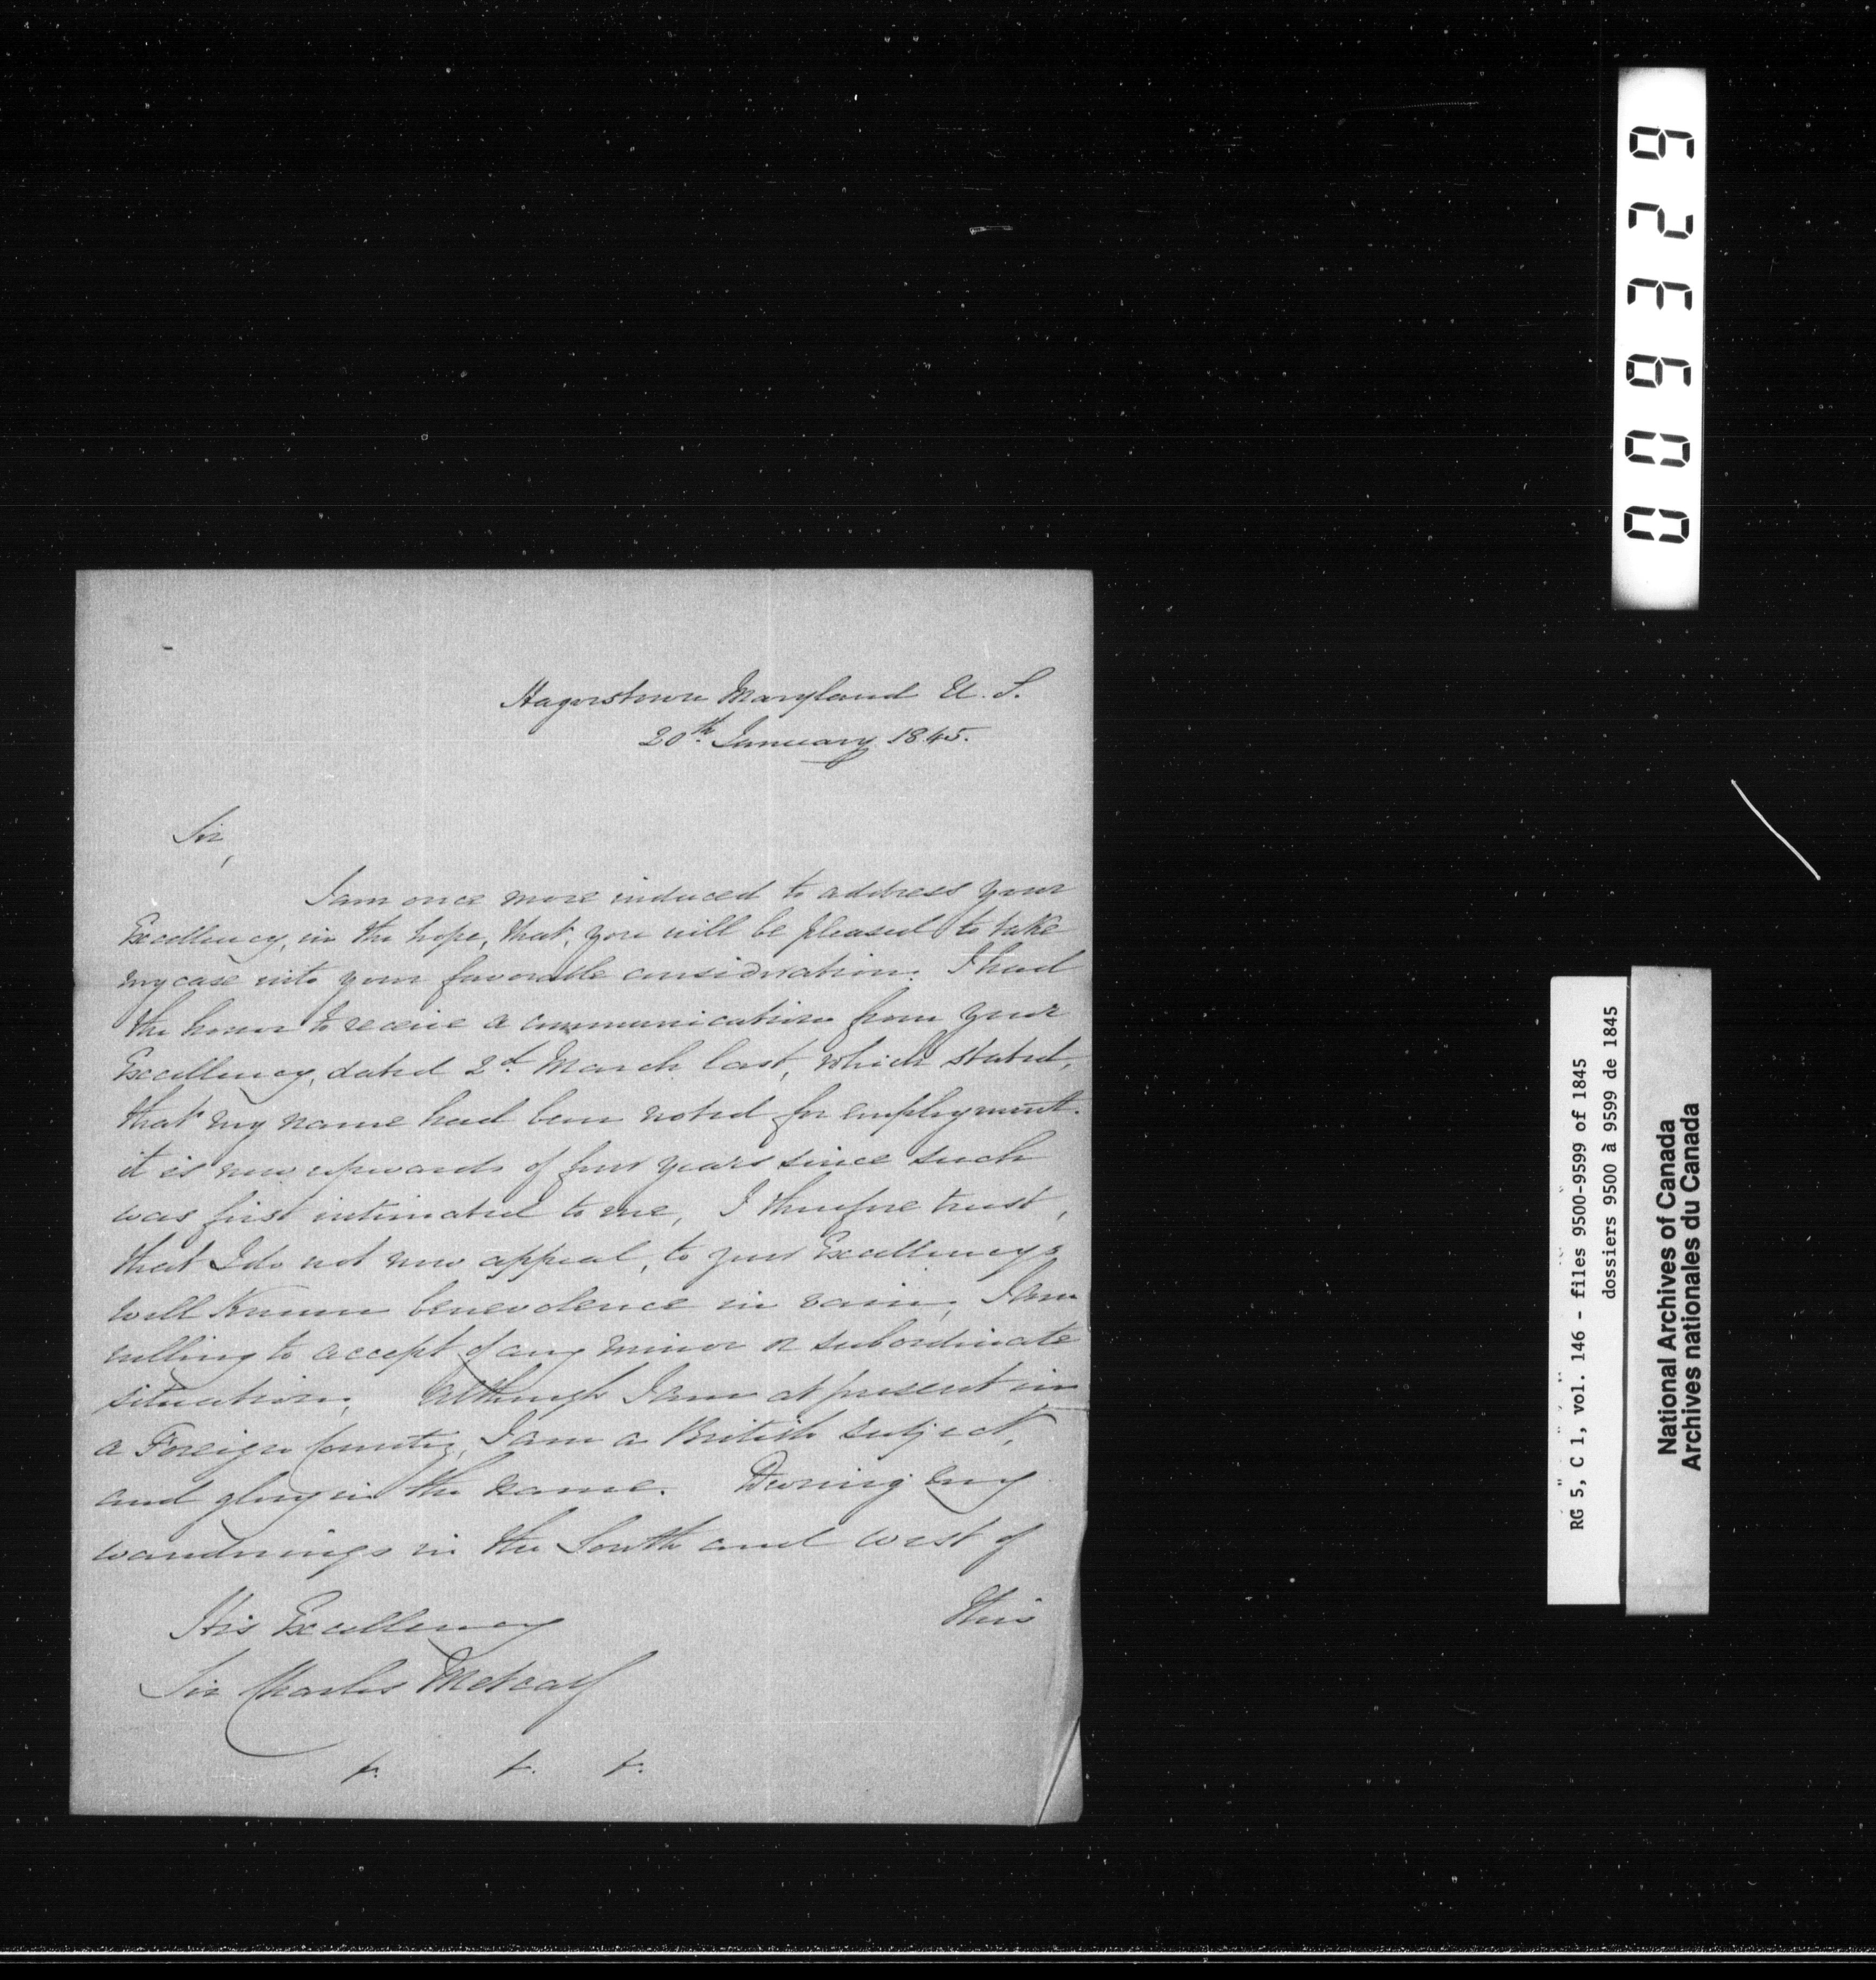 Hagerstown Maryland U. S.
20th January 1845.
Sir,
I am once more induced to address your
Excellency, in the hope, that, you will be pleased to take
my case into your favorable consideration. I had
the honor to receive a communication from your
Excellency, dated 2d March last, which stated,
that my name had been noted for employment.
it is now upwards of four years since such
was first intimated to me, I therefore trust,
that I do not now appeal, to your Excellencys
well known benevolence in vain, I am
willing to accept of any minor or subordinate
situation. Although I am at present in
a Foreign Country, I am a British subject,
and glory in the name. During my
wanderings in the South and west of
this
His Excellency
Sir Charles Metcalf
062360
RG 5, C 1, vol. 146 - files 9500-9599 of 1845
dossiers 9500 à 9599 de 1845
National Archives of Canada
Archives nationales du Canada